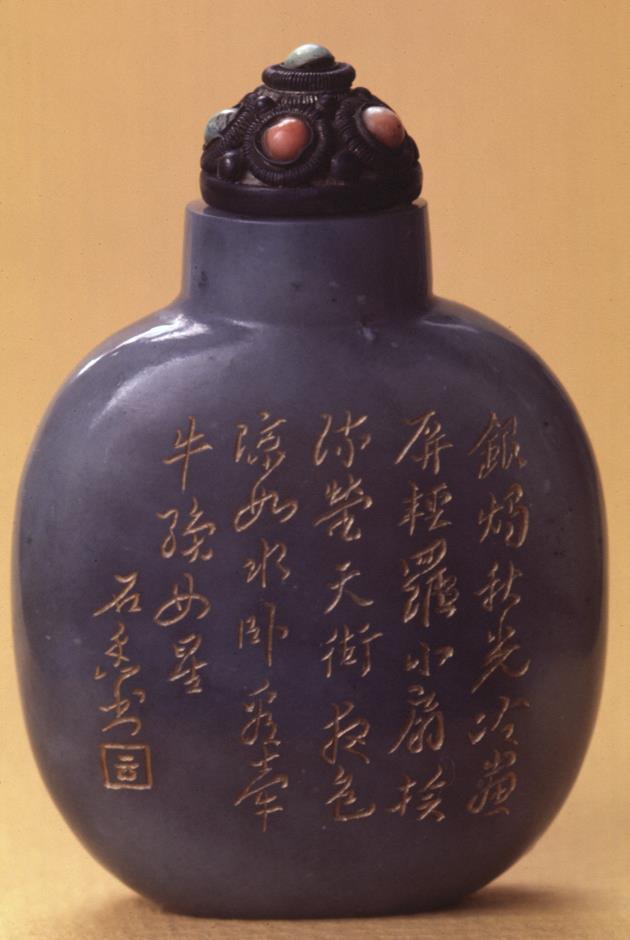 銀燭秋光冷畫
屏輕羅小扇撲
流螢天街夜色
涼如水卧看牽
牛織女星
石